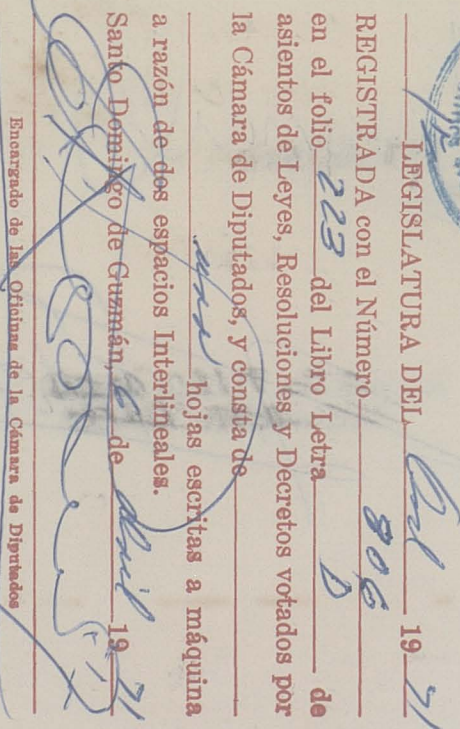 LEGISLATURA DEL Ord 1971
REGISTRADA con el Número 806
en el folio 223 del Libro Letra D de
asientos de Leyes, Resoluciones y Decretos votados por
la Cámara de Diputados, y consta de
una hojas escritas a máquina
a razón de dos espacios Interlineales.
Santo Domingo de Guzmán, 6 de Abril 1971
Encargado de las Oficinas de la Cámara de Diputados